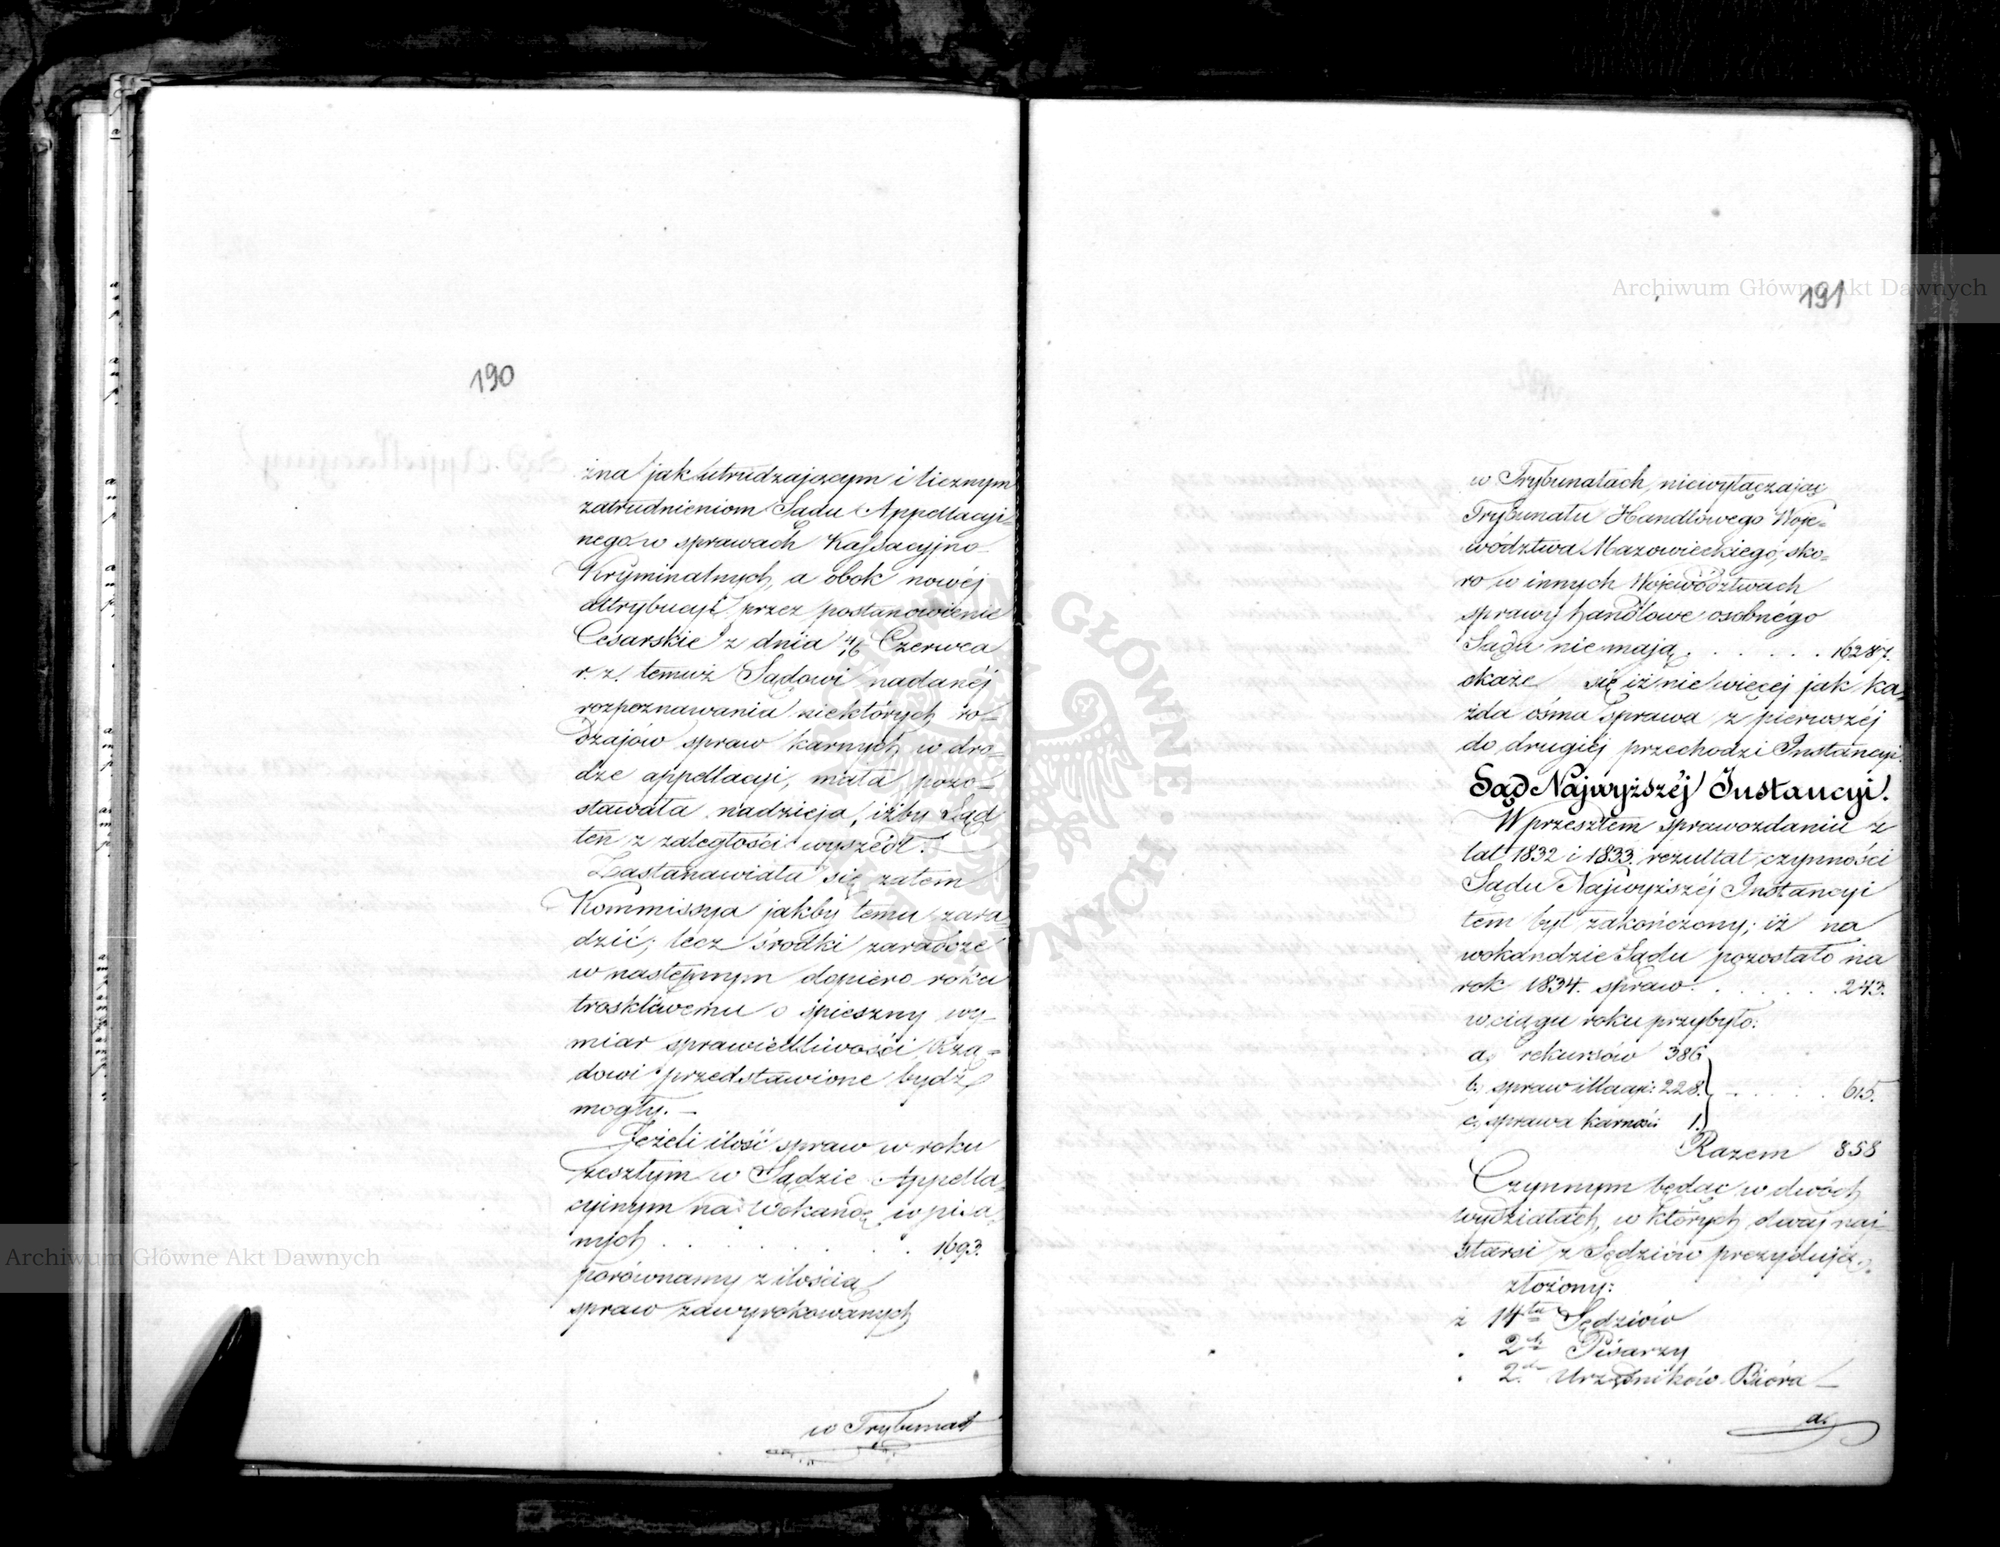 190
żna jak utrudzającym i licznym
zatrudnieniom Sądu Appellacyi-
nego w sprawach Kassacyjno-
Kryminalnych, a obok nowéj
attrybucyi przez postanowienie
Cesarskie z dnia 4/16 Czerwca
r. z. temuż Sądowi nadanéj
rozpoznawania niektórych ro-
dzajów spraw karnych w dro-
dze appellacyi, mała pozo-
stawała nadzieja, iżby Sąd
ten z zaległości wyszedł.
Zastanawiała się zatem
Kommissya jakby temu zara
dzić; lecz środki zaradcze
w następnym dopiero roku
troskliwemu o spieszny wy-
miar sprawiedliwości Rzą-
dowi przedstawione bydź
mogły. —
Jeżeli ilość spraw w roku
zeszłym w Sądzie Appella-
cyinym na Wokandę wpisa-
nych . . . . . . . 1693.
porównamy z ilością
spraw zawyrokowanych
w Trybunał
191
w Trybunałach, niewyłączając
Trybunału Handlowego Woje-
wództwa Mazowieckiego, sko-
ro w innych Województwach
sprawy handlowe osobnego
Sądu nie mają . . . . . . 16287.
okaże się iż nie więcej jak ka-
żda ósma sprawa z pierwszéj
do drugiéj przechodzi Instancyi.
Sąd Najwyższéj Instancyi.
W przeszłem sprawozdaniu z
lat 1832 i 1833. rezultat czynności
Sądu Najwyższéj Instancyi
tem był zakończony; iż na
wokandzie Sądu pozostało na
rok 1834. spraw . . . . . . 243.
w ciągu roku przybyło:
a, rekursów 386
b, spraw illacyi: 228. — . . . . 615.
c, sprawa karnoś: 1.
Razem 858
Czynnym będąc w dwóch
wydziałach, w których dwaj naj-
starsi z Sędziów prezydują,
złożony:
z 14tu Sędziów
" 2ch Pisarzy
" 2ch Urzędników Bióra —
a,
Archiwum Główne Akt Dawnych
Archiwum Główne Akt Dawnych
ARCHIWUM GŁÓWNE AKT DAWNYCH